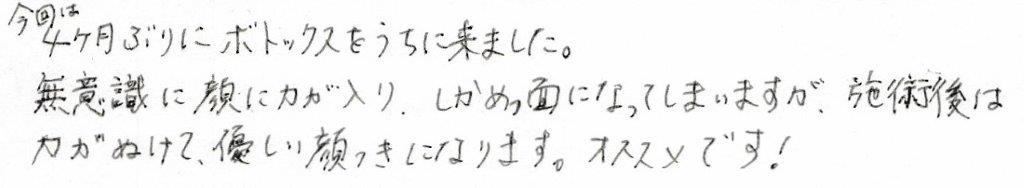 今回は
4ヶ月ぶりにボトックスをうちに来ました。
無意識に顔に力が入り、しかめっ面になってしまいますが、施術後は
力がぬけて、優しい顔つきになります。オススメです!